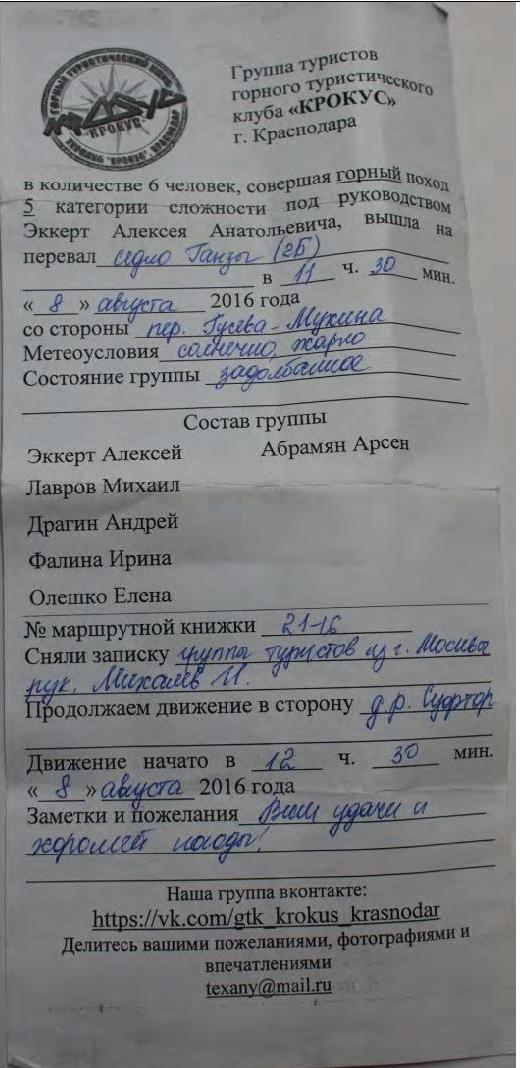 КРОКУС
Группа туристов
горного туристического
клуба «КРОКУС»
г. Краснодара
в количестве 6 человек, совершая горный поход
5 категории сложности под руководством
Эккерт Алексея Анатольевича, вышла на
перевал седло Ганзы (2Б)
в 11 ч. 30 мин.
« 8 » августа 2016 года
со стороны пер. Гусева-Мухина
Метеоусловия солнечно, жарко
Состояние группы задолбанное
Состав группы
Эккерт Алексей Абрамян Арсен
Лавров Михаил
Драгин Андрей
Фалина Ирина
Олешко Елена
№ маршрутной книжки 21-16
Сняли записку группа туристов из г. Москва
рук. Михалев И.
Продолжаем движение в сторону д.р. Суфтор
Движение начато в 12 ч. 30 мин.
« 8 » августа 2016 года
Заметки и пожелания Всем удачи и
хорошей погоды!
Наша группа вконтакте:
https://vk.com/gtk_krokus_krasnodar
Делитесь вашими пожеланиями, фотографиями и
впечатлениями
texany@mail.ru